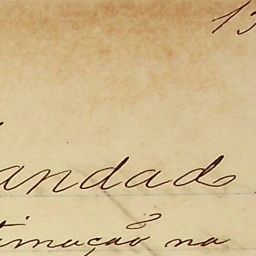 13
andado
timação na